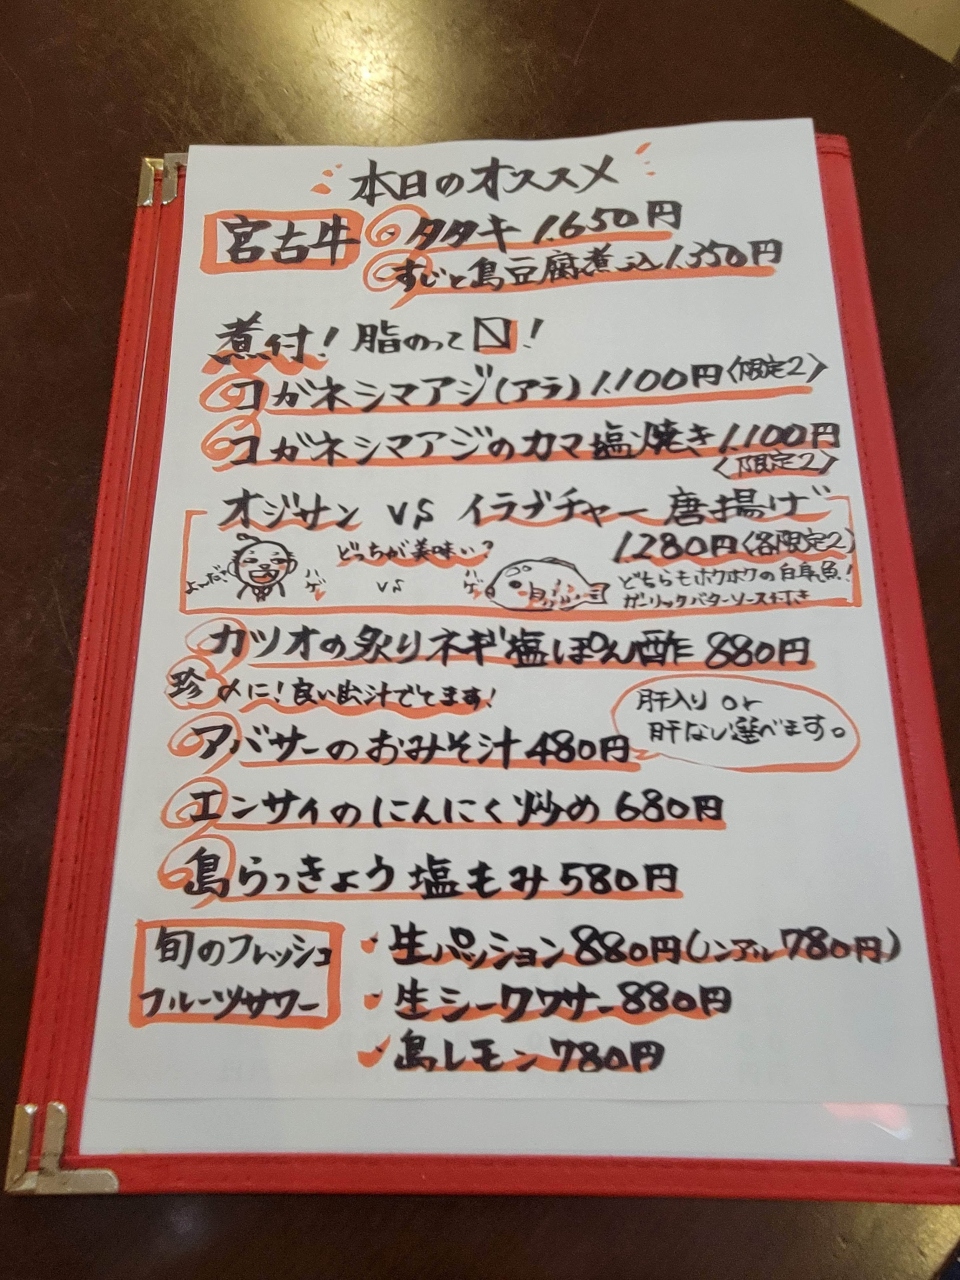 本日のオススメ
宮古牛 ・タタキ 1.650円
・すじと島豆腐煮込 1.350円
煮付! 脂のって〼!
コガネシマアジ(アラ) 1.100円〈限定2〉
コガネシマアジのカマ塩焼き 1.100円
〈限定2〉
オジサン VS イラブチャー 唐揚げ
どっちが美味い?
1.280円〈各限定2〉
VS
どちらもホクホクの白身魚!
ガーリックバターソース付き
カツオの炙りネギ塩ぽん酢 880円
珍 〆に!良い出汁でてます!
肝入り or
肝なし選べます。
アバサーのおみそ汁 480円
エンサイのにんにく炒め 680円
島らっきょう塩もみ 580円
旬のフレッシュ
フルーツサワー
・生パッション 880円(ノンアル780円)
・生シークワサー 880円
・島レモン 780円